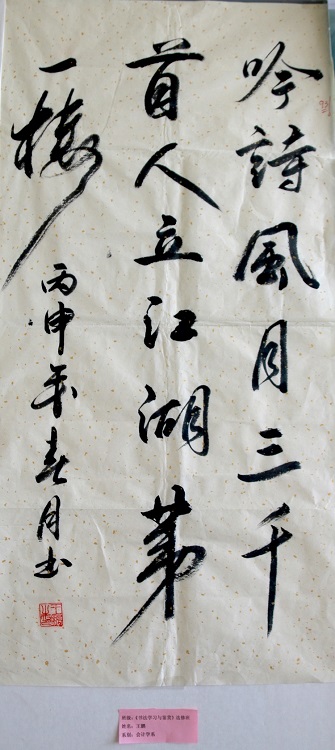 吟詩風月三千
首人立江湖第
一樓
丙申年春月书
班级：《书法学习与鉴赏》选修班
姓名：王鹏
系别：会计学系